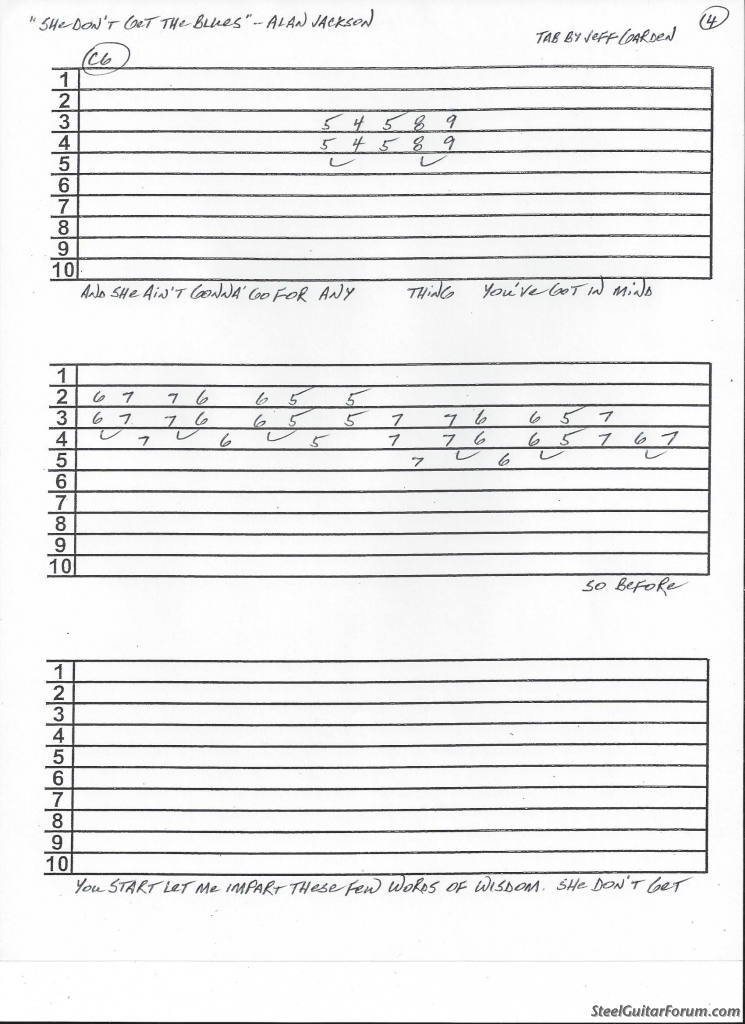 "She Don't Get The Blues" -- Alan Jackson
4
Tab by Jeff Garden
C6
1
2
3 5 4 5 8 9
4 5 4 5 8 9
5
6
7
8
9
10
And she ain't gonna' go for any thing you've got in mind
1
2 6 7 7 6 6 5 5
3 6 7 7 6 6 5 5 7 7 6 6 5 7
4 7 6 5 7 7 6 6 5 7 6 7
5 7 6
6
7
8
9
10
So before
1
2
3
4
5
6
7
8
9
10
You start let me impart these few words of wisdom. She don't get
SteelGuitarForum.com